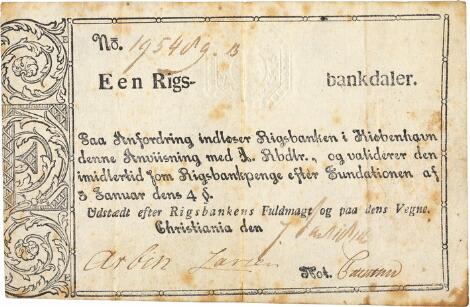 No. 195489. B
Een Rigs- bankdaler.
Paa Anfordring indløser Rigsbanken i Kiøbenhavn
denne Anviisning med 1. Rbdlr., og validerer den
imidlertid som Rigsbankpenge efter Fundationen af
5 Januar dens 4 §.
Udstædt efter Rigsbankens Fuldmagt og paa dens Vegne.
Christiania den
Arbin Larsen
Not.